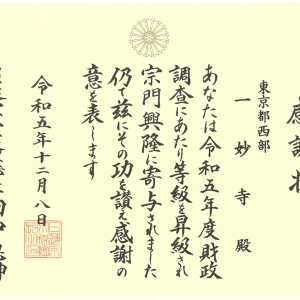 感謝状
東京都西部
一妙寺殿
あなたは令和五年度財政
調査にあたり等級を昇級され
宗門興隆に寄与されました
仍て茲にその功を讃え感謝の
意を表します
令和五年十二月八日